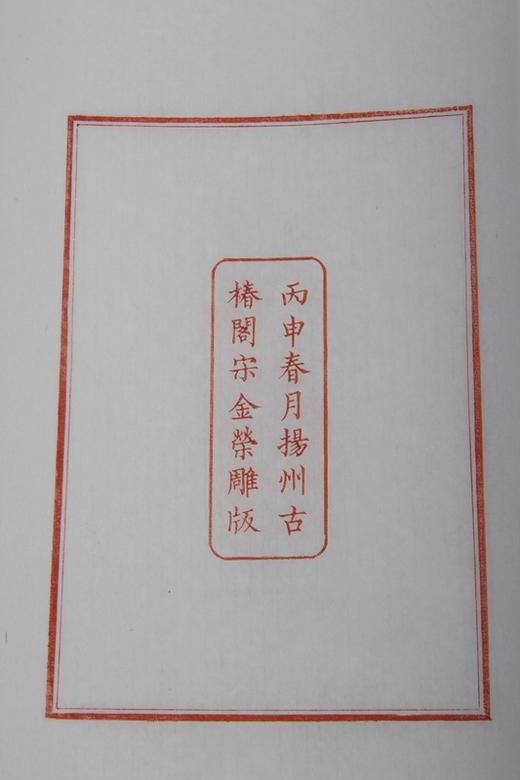 丙申春月揚州古
椿閣宋金榮雕版